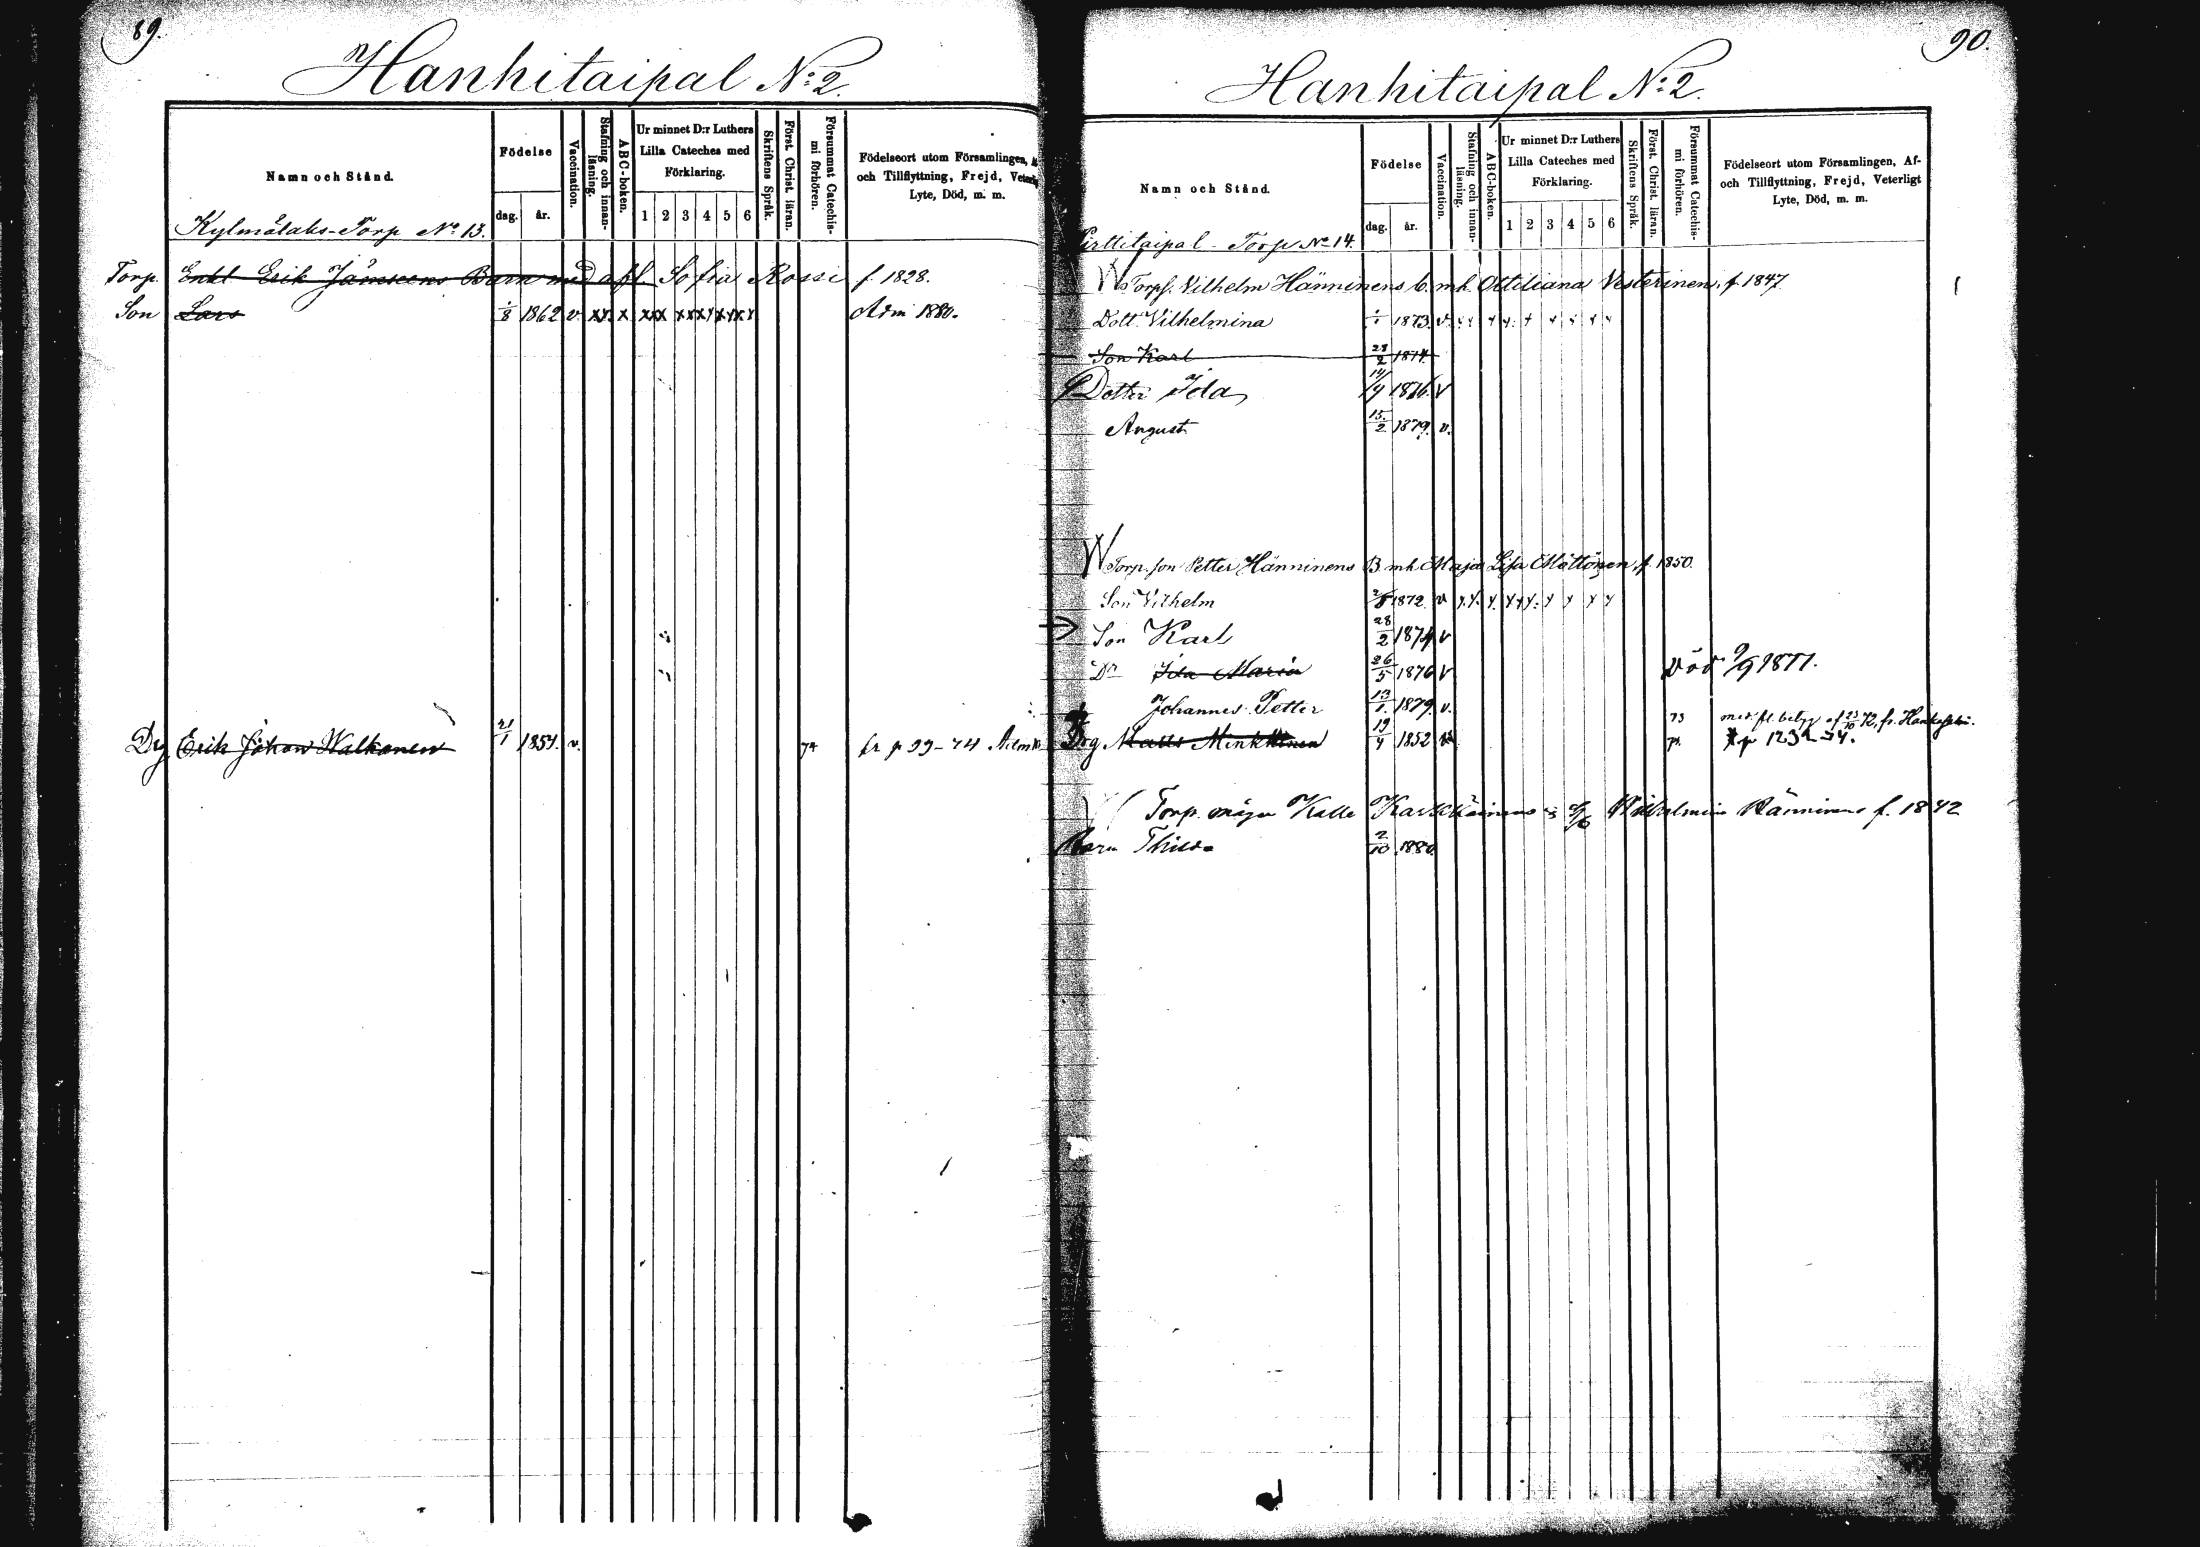 89.
Hanhitaipal No: 2.
Namn och Stånd.
Födelse
dag. år.
Vaccination.
Stafning och innanläsning.
ABC-boken.
Ur minnet D:r Luthers Lilla Cateches med Förklaring.
1 2 3 4 5 6
Skriftens Språk.
Först. Christ. läran.
Försummat Catechismi förhören.
Födelseort utom Församlingen,
och Tillflyttning, Frejd,
Lyte, Död, m. m.
Torp No 13.
Torp. Enkl Erik Jämseens Barn med afl. Sofia Rossi f. 1828.
Son Lars 1/8 1862 v. xx x xxx xxxy xyxy Adm 1880.
Drg Erik Johan Walkonen 21/1 1854. v. 74 fr p 99-74
90.
Hanhitaipal No: 2.
Namn och Stånd.
Födelse
dag. år.
Vaccination.
Stafning och innanläsning.
ABC-boken.
Ur minnet D:r Luthers Lilla Cateches med Förklaring.
1 2 3 4 5 6
Skriftens Språk.
Först. Christ. läran.
Försummat Catechismi förhören.
Födelseort utom Församlingen, Af-
och Tillflyttning, Frejd, Veterligt
Lyte, Död, m. m.
Pirttitaipal - Torp No 14.
Torpf. Vilhelm Hänninens b. mh. Ottiliana Vesterinen, f. 1847
Dott. Vilhelmina 1873. v.
Son Karl 28/2 1874
Dotter Ida 14/9 1876. v
August 15/2 1879. v.
Torp. son Petter Hänninens B mh Maja Lisa Möttönen, f. 1850.
Son Vilhelm 1872 v
Son Karl 28/2 1874 v
Dr Ida Maria 26/5 1876 v död 9/9 1877.
Johannes Petter 13/1 1879. v.
Drg Matts Minkkinen 19/4 1852 v 73 med fl. betyg af 23/10 72, fr.
p 123
Torp. måge Kalle Karkkainens Wilhelmina Hänninens f. 1842
Barn 2/10 1880.